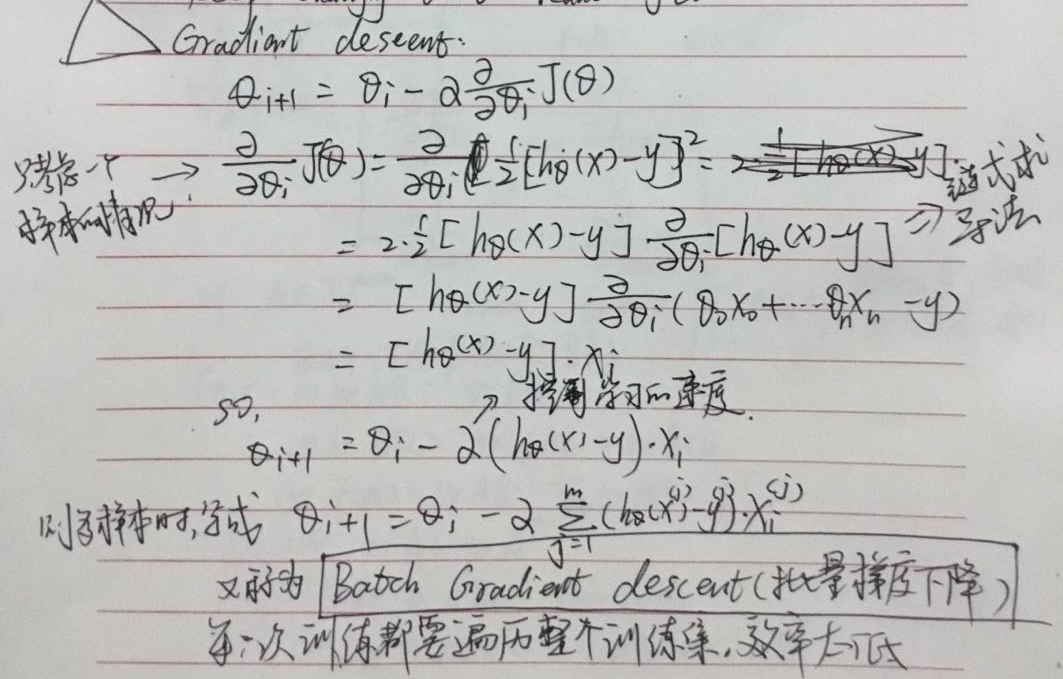 Gradient descent:
θi+1 = θi - α ∂/∂θi J(θ)
只考虑一个样本的情况 → ∂/∂θi J(θ) = ∂/∂θi 1/2[hθ(x)-y]² = 2·1/2[hθ(x)-y]·
= 2·1/2[hθ(x)-y] ∂/∂θi[hθ(x)-y] ⇒ 链式求导法
= [hθ(x)-y] ∂/∂θi(θ0x0+···θnxn-y)
= [hθ(x)-y]·xi
so, ↗ 控制学习的速度.
θi+1 = θi - α(hθ(x)-y)·xi
则多样本时,写成 θi+1 = θi - α Σ_{j=1}^{m}(hθ(x^(j))-y^(j))·xi^(j)
又称为 Batch Gradient descent(批量梯度下降)
每次训练都要遍历整个训练集,效率太低